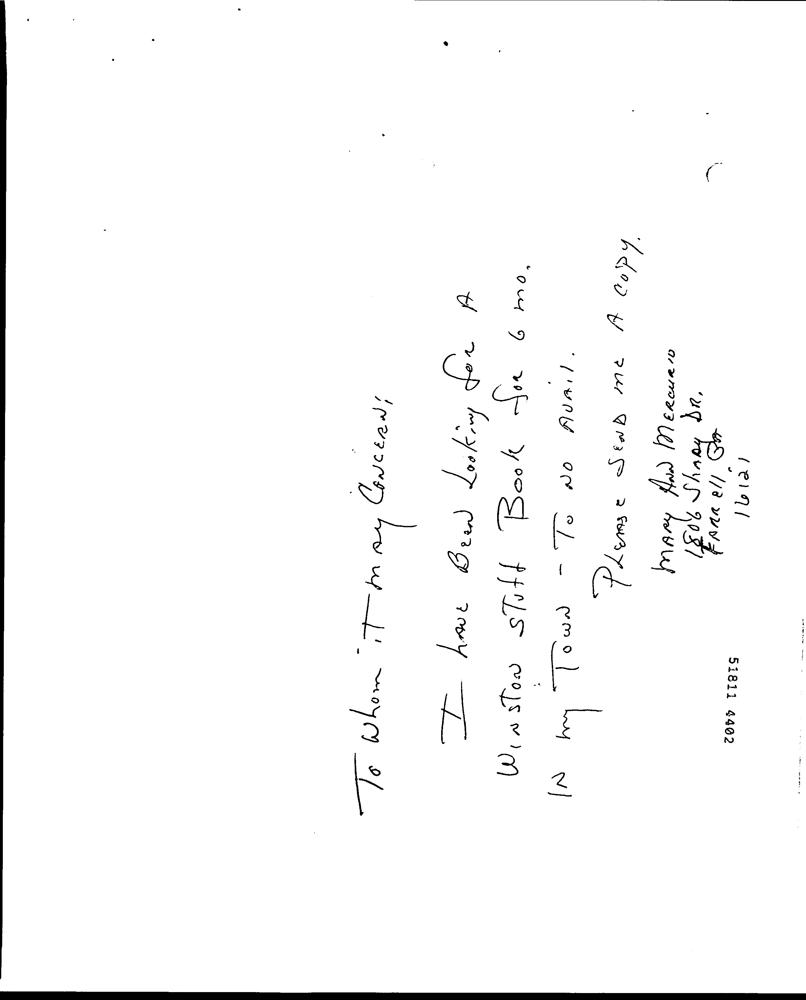 To Whom it may Concern;
I have Been Looking for A
Winston Stuff Book for 6 mo.
in my Town - To no avail.
Please Send me A copy.
Mary Ann Mercurio
1806 Shady Dr.
Farrell Pa
16121
51811 4402